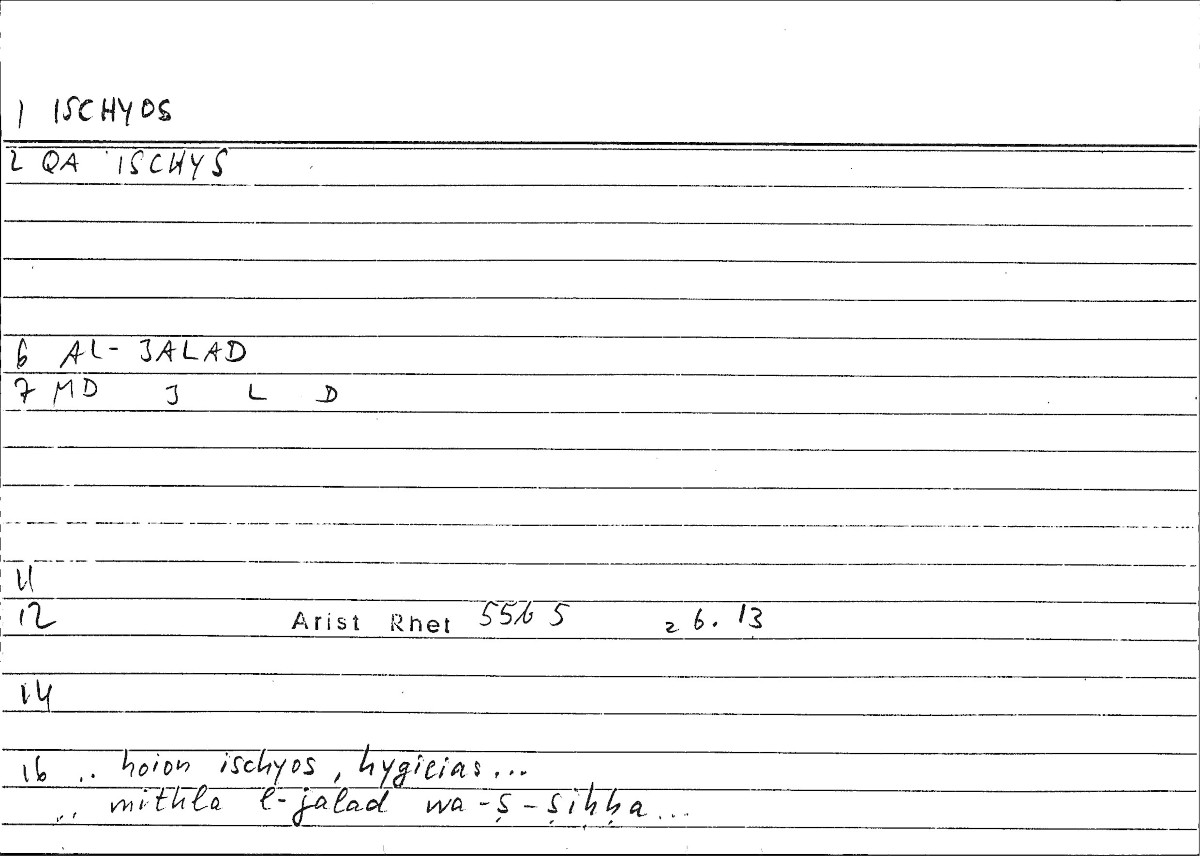 1 ISCHYOS
2 QA ISCHYS
6 AL-JALAD
7 MD J L D
11
12 Arist Rhet 55b 5 26.13
14
16 .. hoion ischyos, hygieias...
.. mithla l-jalad wa-ṣ-ṣiḥḥa...